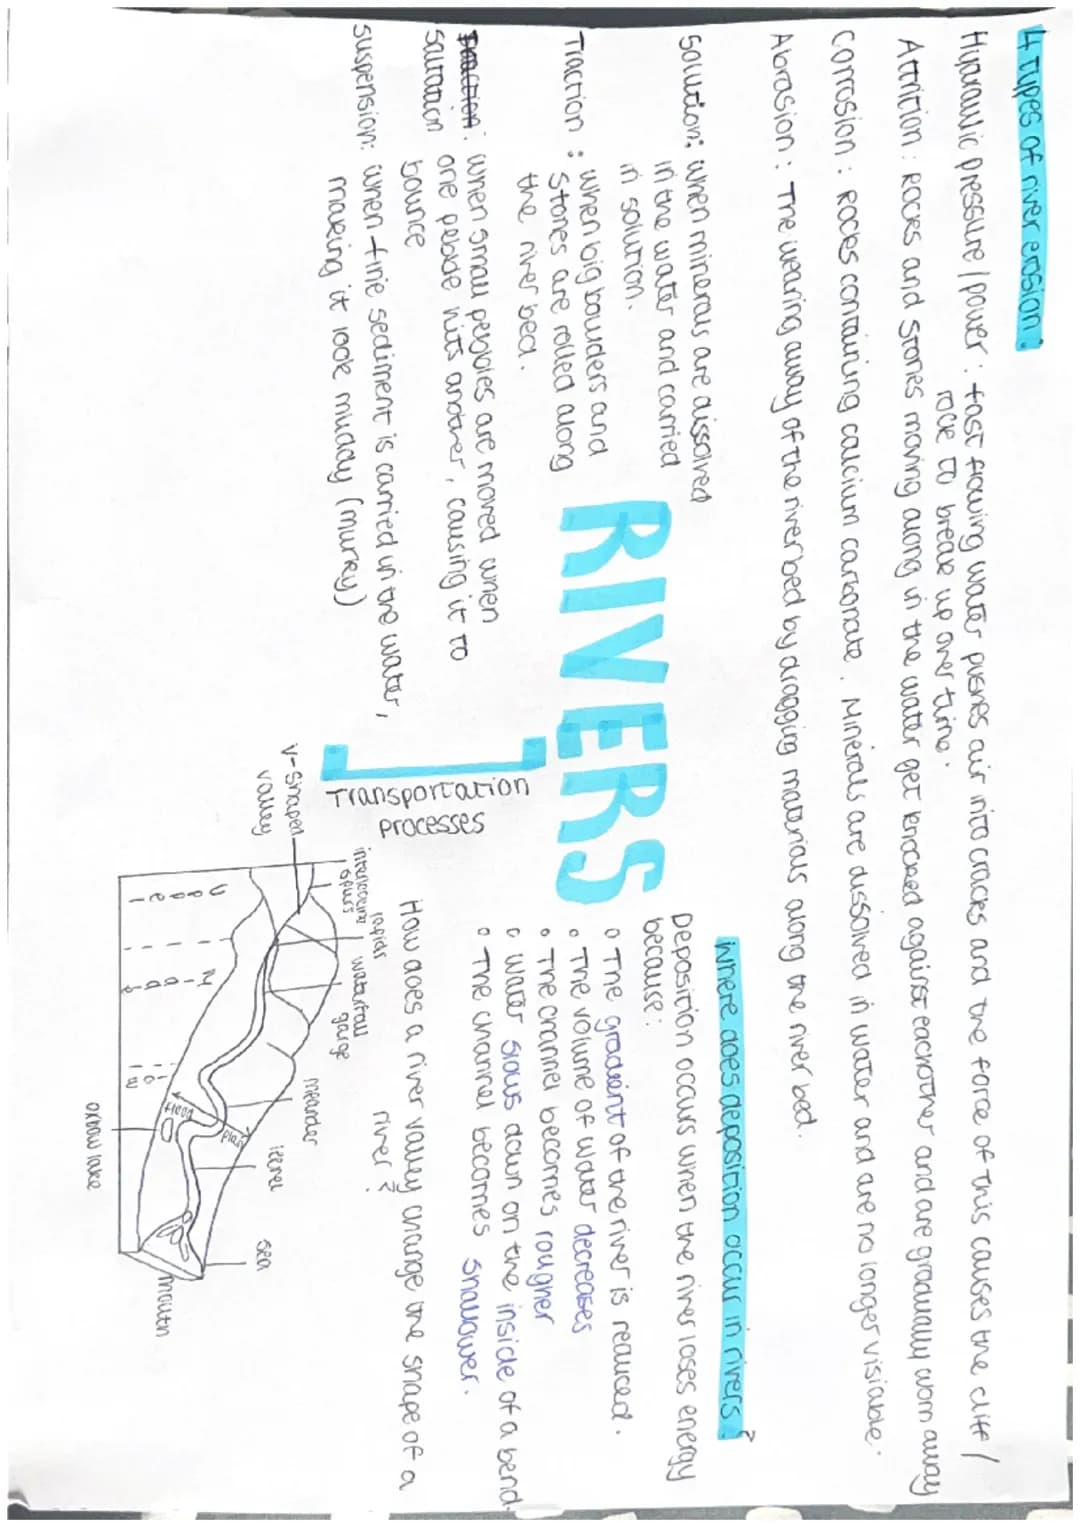 4 types of river erosion:
Hydraulic pressure / power : fast flowing water pushes air into cracks and the force of this causes the cliff /
rock to break up over time.
Attrition : Rocks and stones moving along in the water get knocked against eachother and are gradually worn away
Corrosion : Rocks containing calcium carbonate. Minerals are dissolved in water and are no longer visiable.
Abrosion : The wearing away of the riverbed by dragging materials along the river bed.
Solution: when minerals are dissolved
in the water and carried
in solution.
Traction : when big boulders and
stones are rolled along
the river bed.
RIVERS
Traction: when small pebbles are moved when
Saltation one pebble hits another, causing it to
bounce
suspension: when fine sediment is carried in the water,
making it look muddy (murky)
Transportation
processes
where does deposition occur in rivers?
Deposition occurs when the river loses energy
because:
The gradient of the river is reduced.
The volume of water decreases
The channel becomes rougher
water slows down on the inside of a bend.
The channel becomes shallower.
How does a river valley change the shape of a
river?
V-shaped
valley
interlocking
spurs
rapids
waterfall
gorge
meander
sea
flood
plain
oxbow lake
mouth